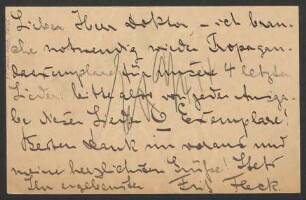 Lieber Herr Doktor – ich brau-
che notwendig wieder Propagan-
daexemplare für unsere 4 letzten
Lieder. Bitte also von jeder Ausga-
be dieser Lieder 6 Exemplare!
Besten Dank im voraus und
meine herzlichsten Grüße! Stets
Ihr ergebenster Fritz Fleck.